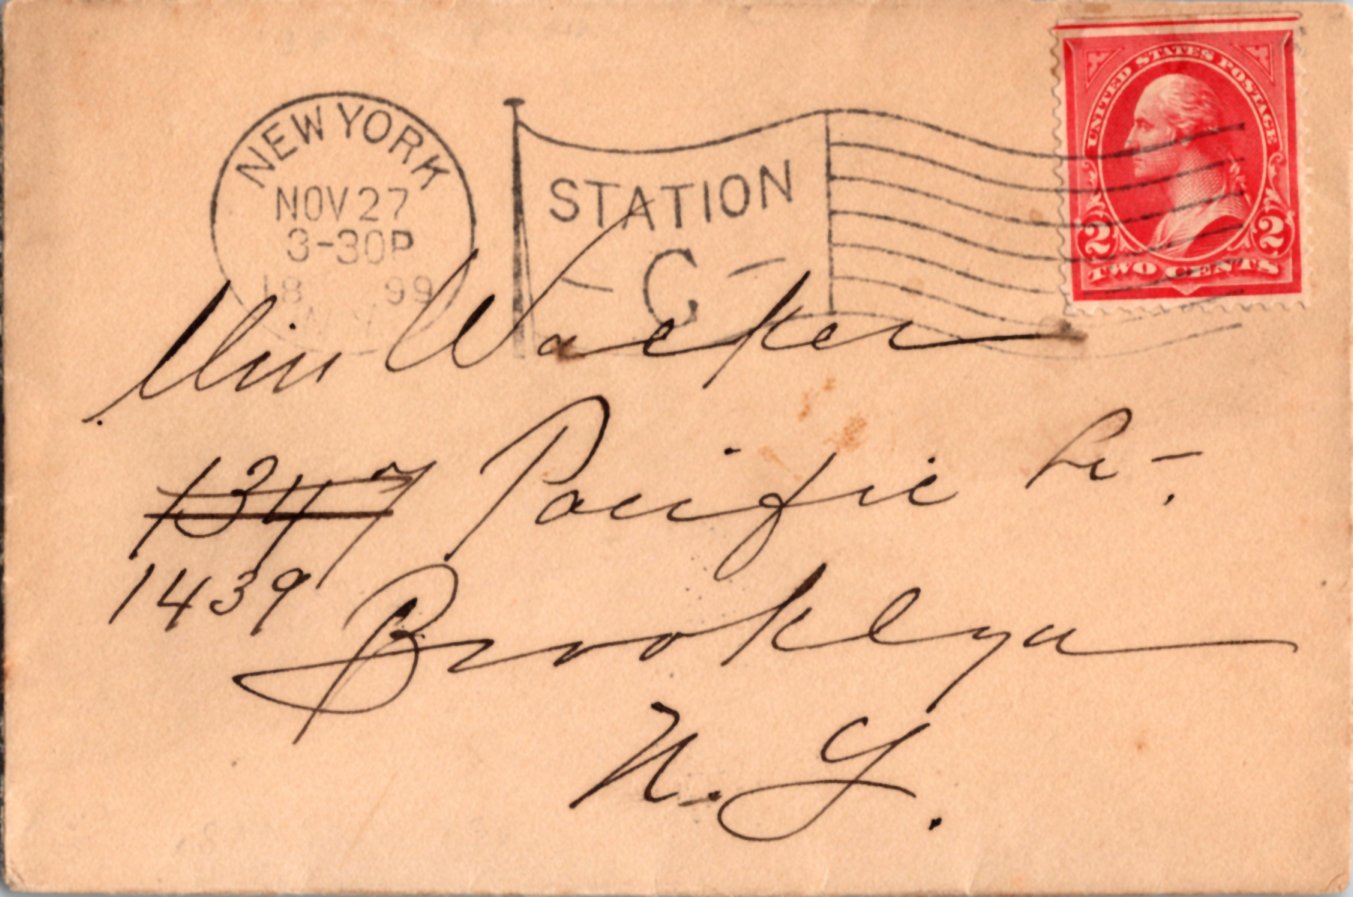 UNITED STATES POSTAGE
2 2
TWO CENTS
NEW YORK
NOV 27
3-30P
18 99
N.Y.
STATION
C
Miss Walker
1347 Pacific St.
1439
Brooklyn
N.Y.